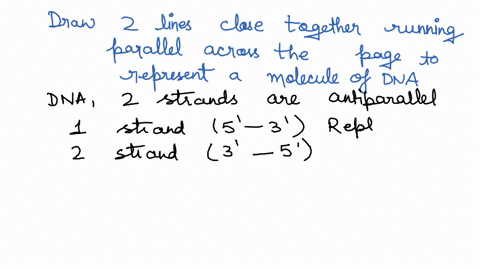 Draw 2 lines close together running
parallel across the page to
represent a molecule of DNA
DNA, 2 strands are antiparallel
1 strand (5' - 3') Repl
2 strand (3' - 5')